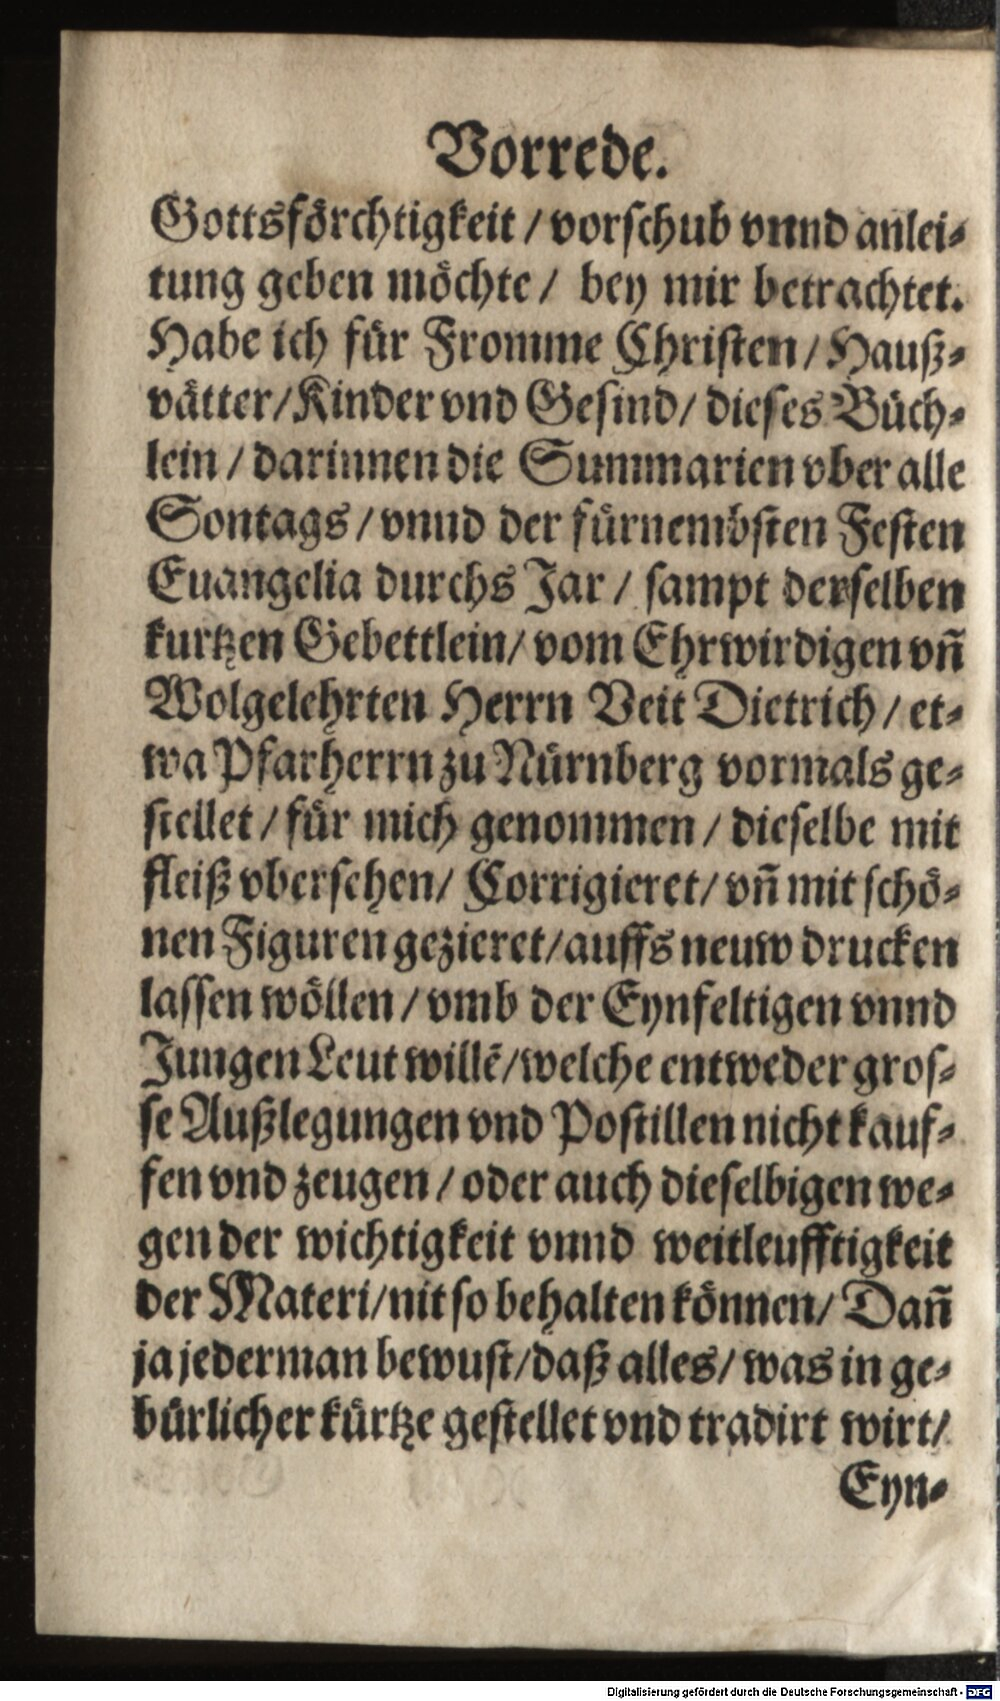 Vorrede.
Gottsförchtigkeit / vorschub vnnd anlei-
tung geben möchte / bey mir betrachtet.
Habe ich für Fromme Christen / Hauß-
vätter / Kinder vnd Gesind / dieses Büch-
lein / darinnen die Summarien vber alle
Sontags / vnnd der fürnembsten Festen
Euangelia durchs Jar / sampt derselben
kurtzen Gebettlein / vom Ehrwirdigen vñ
Wolgelehrten Herrn Veit Dietrich / et-
wa Pfarherrn zu Nürnberg vormals ge-
stellet / für mich genommen / dieselbe mit
fleiß vbersehen / Corrigieret / vñ mit schö-
nen Figuren gezieret / auffs neuw drucken
lassen wöllen / vmb der Eynfeltigen vnnd
Jungen Leut willẽ / welche entweder gros-
se Außlegungen vnd Postillen nicht kauf-
fen vnd zeugen / oder auch dieselbigen we-
gen der wichtigkeit vnnd weitleufftigkeit
der Materi / nit so behalten können / Dañ
ja jederman bewust / daß alles / was in ge-
bürlicher kürtze gestellet vnd tradirt wirt /
Eyn-
Digitalisierung gefördert durch die Deutsche Forschungsgemeinschaft - DFG